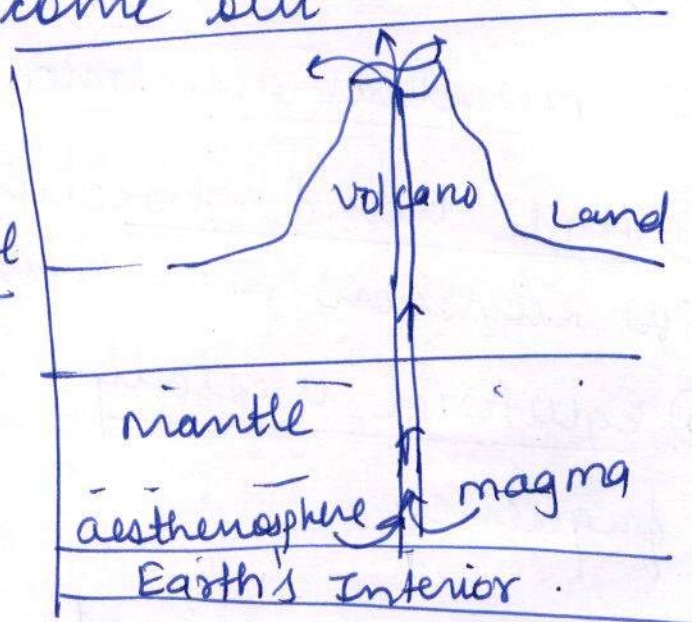 come out
volcano
Land
mantle
magma
aesthenosphere
Earth's Interior .